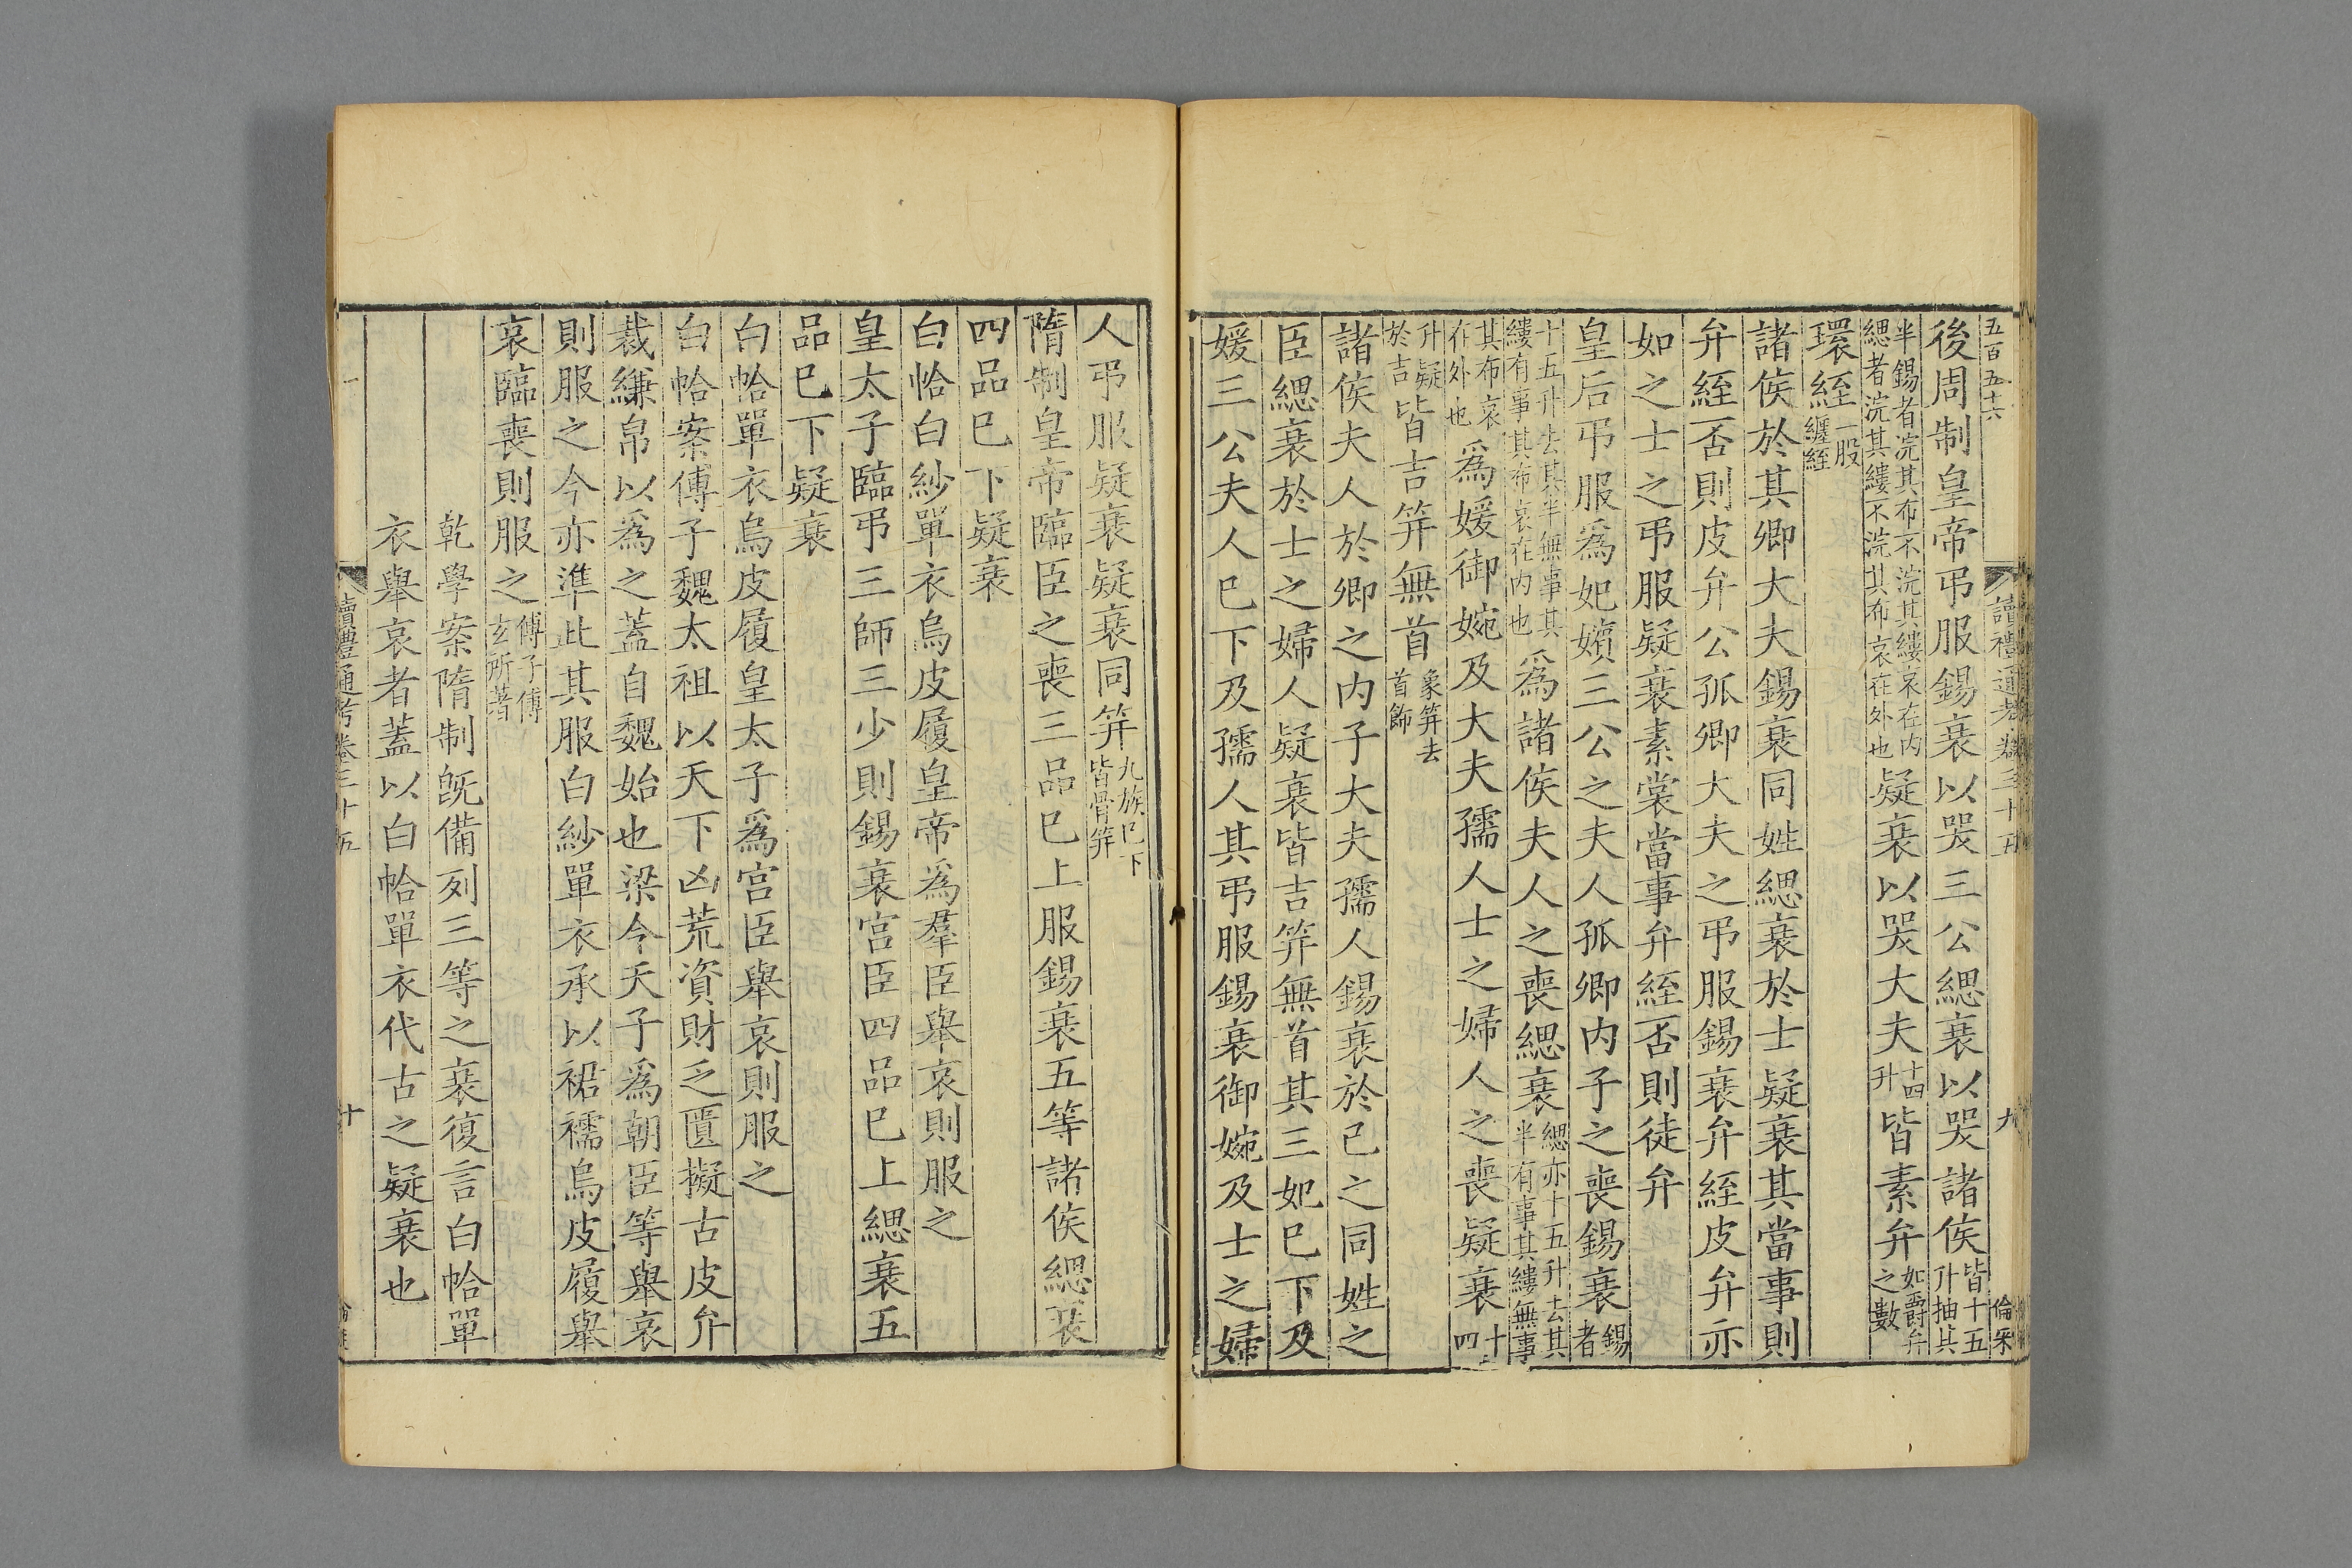 五百五十六
讀禮通考卷三十五
九
倫采
後周制皇帝弔服錫衰以哭三公緦衰以哭諸侯皆十五升抽其
半錫者浣其布不浣其縷哀在内緦者浣其縷不浣其布哀在外也疑衰以哭大夫十四升皆素弁如爵弁之數
環絰一股纏絰
諸侯於其卿大夫錫衰同姓緦衰於士疑衰其當事則
弁絰否則皮弁公孤卿大夫之弔服錫衰弁絰皮弁亦
如之士之弔服疑衰素裳當事弁絰否則徒弁
皇后弔服爲妃嬪三公之夫人孤卿内子之喪錫衰錫者
十五升去其半無事其縷有事其布哀在内也爲諸侯夫人之喪緦衰緦亦十五升去其半有事其縷無事
其布哀在外也爲媛御婉及大夫孺人士之婦人之喪疑衰十四
升疑於吉皆吉笄無首象笄去首飾
諸侯夫人於卿之内子大夫孺人錫衰於己之同姓之
臣緦衰於士之婦人疑衰皆吉笄無首其三妃巳下及
媛三公夫人巳下及孺人其弔服錫衰御婉及士之婦
人弔服疑衰疑衰同笄九族巳下皆骨笄
隋制皇帝臨臣之喪三品巳上服錫衰五等諸侯緦衰
四品巳下疑衰
白帢白紗單衣烏皮履皇帝爲羣臣舉哀則服之
皇太子臨弔三師三少則錫衰宫臣四品巳上緦衰五
品巳下疑衰
白帢單衣烏皮履皇太子爲宫臣舉哀則服之
白帢案傅子魏太祖以天下凶荒資財乏匱擬古皮弁
裁縑帛以爲之蓋自魏始也梁令天子爲朝臣等舉哀
則服之今亦準此其服白紗單衣承以裙襦烏皮履舉
哀臨喪則服之傅子傅玄所著
乾學案隋制旣備列三等之衰復言白帢單
衣舉哀者蓋以白帢單衣代古之疑衰也
讀禮通考卷三十五
十